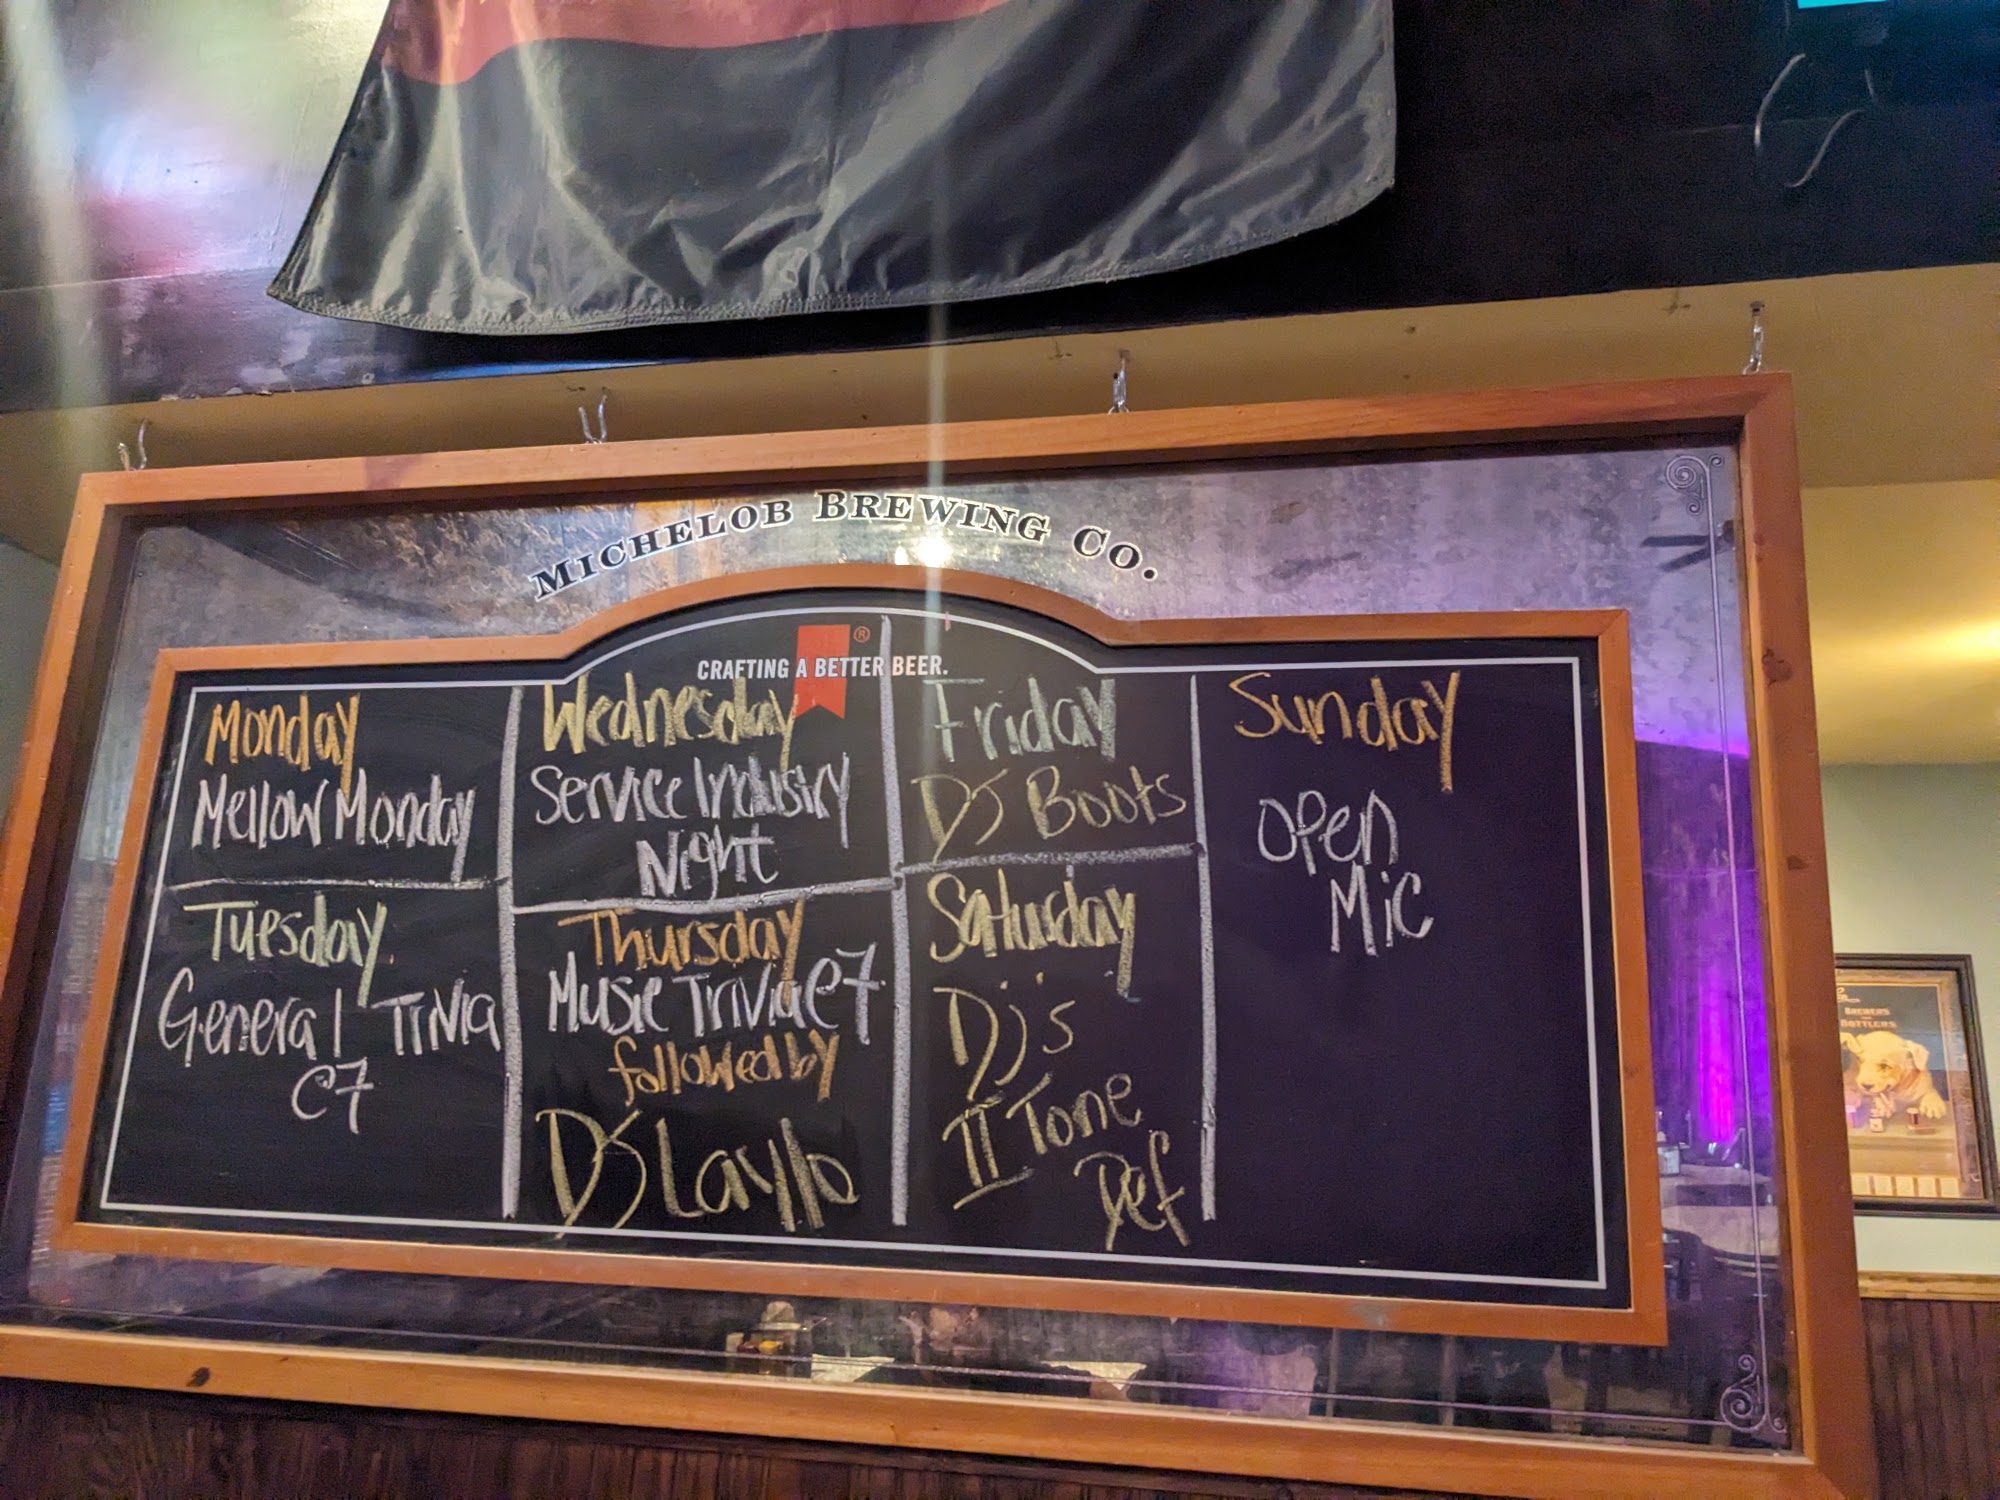 MICHELOB BREWING CO.
CRAFTING A BETTER BEER.
Monday
Mellow Monday
Tuesday
General Trivia
@7
Wednesday
Service Industry
Night
Thursday
Music Trivia @7
followed by
DJ Layllo
Friday
DJ Boots
Saturday
Dj's
II Tone
Def
Sunday
Open
Mic
BREWERS
BOTTLERS